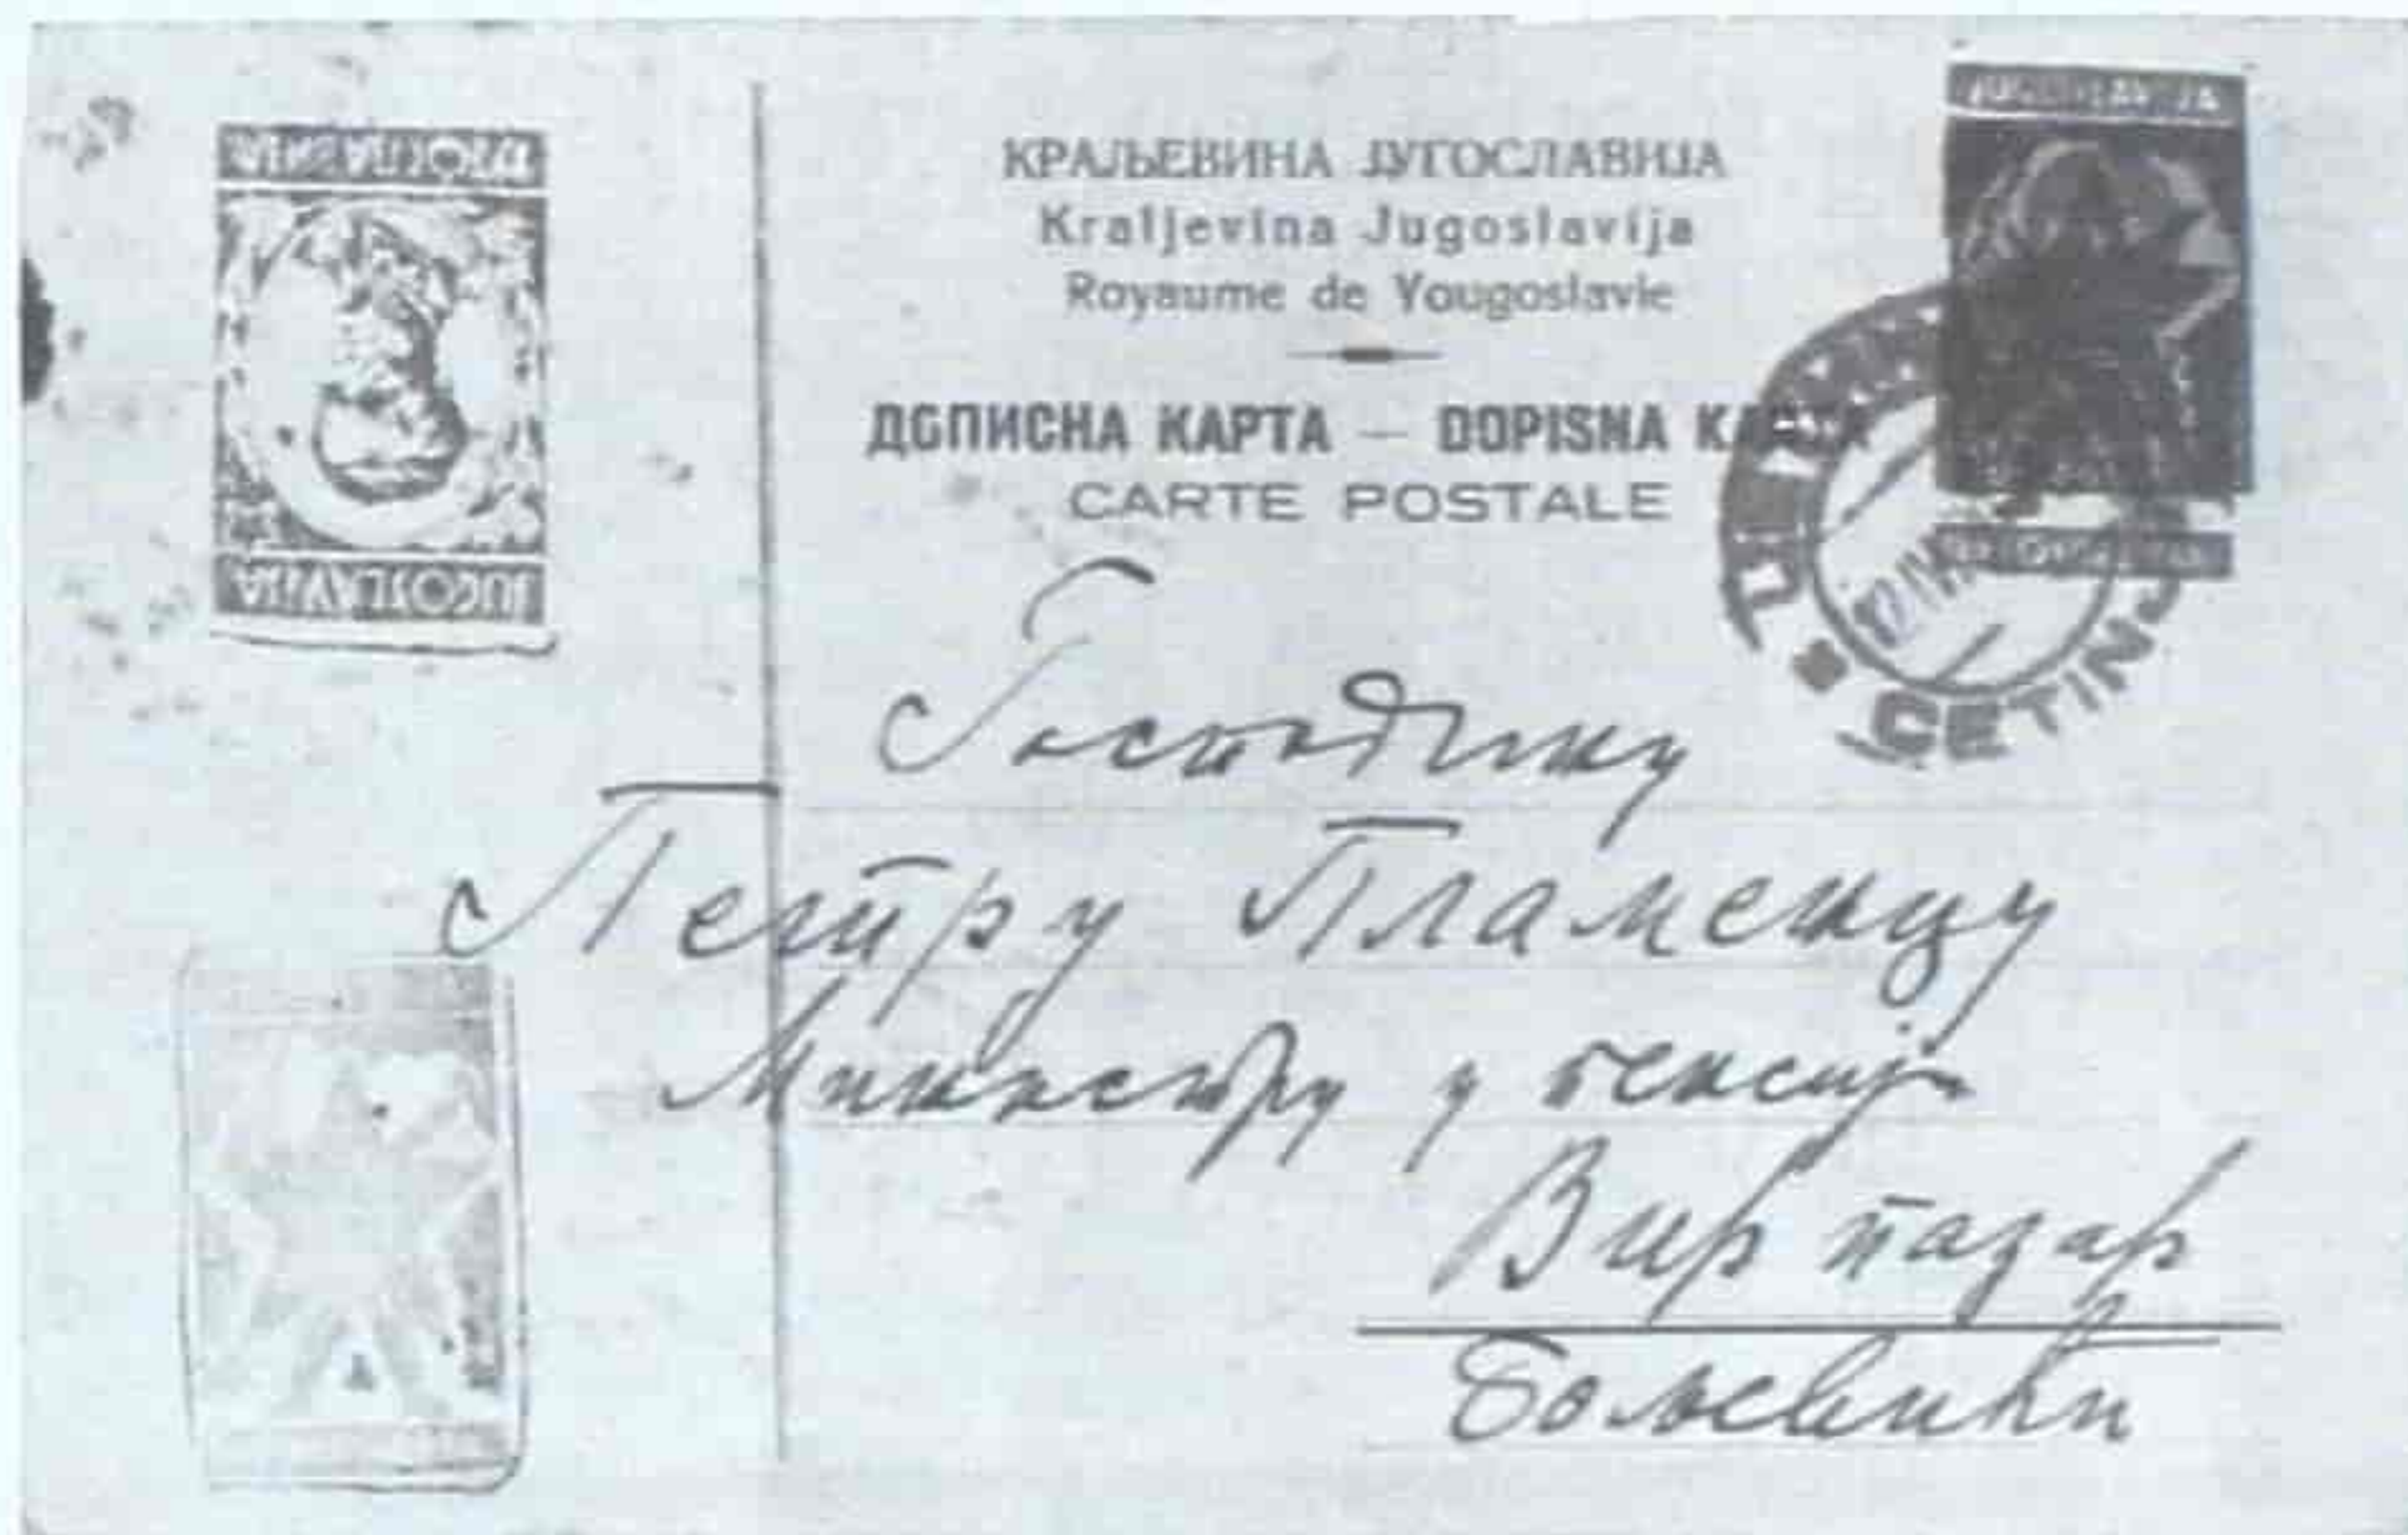 ЈУГОСЛАВИЈА
JUGOSLAVIJA
КРАЉЕВИНА ЈУГОСЛАВИЈА
Kraljevina Jugoslavija
Royaume de Yougoslavie
ДОПИСНА КАРТА — DOPISNA KARTA
CARTE POSTALE
JUGOSLAVIJA
CETINJ
Господину
Петру Пламенцу
Министру у пензији
Вир пазар
Бољевићи